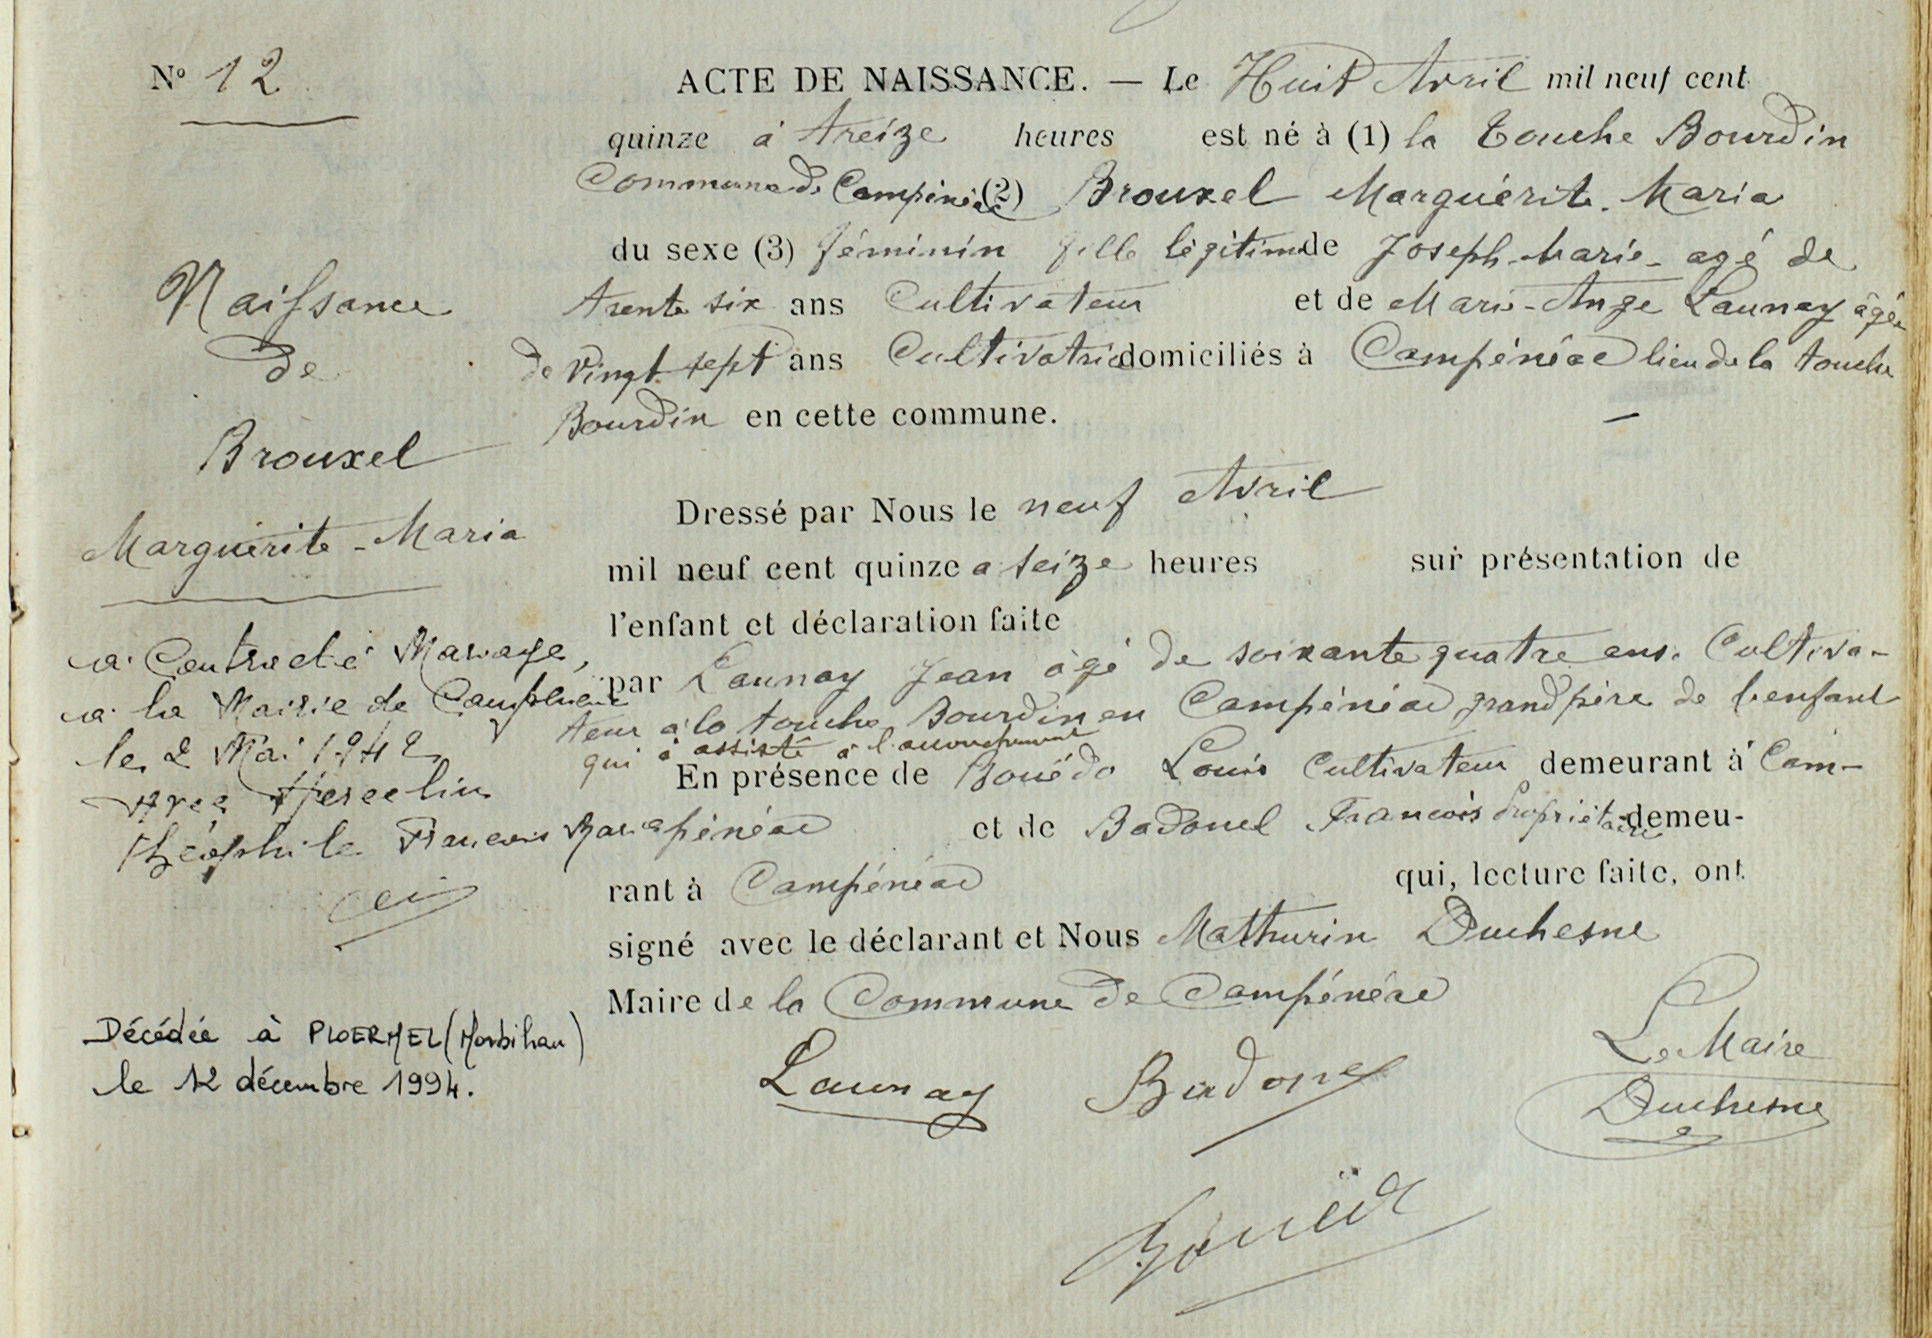 N° 12
Naissance
de
Brouxel
Marguérite - Maria
a Contracté Mariage,
a la Mairie de Campénéac
le 2 Mai 1942
avec
Théophile François Marie
Décédée à PLOERMEL (Morbihan)
le 12 décembre 1994.
ACTE DE NAISSANCE. — Le Huit Avril mil neuf cent
quinze à treize heures est né à (1) la touche Bourdin
Commune de Campénéac (2) Brouxel Marguérite. Maria
du sexe (3) féminin fille légitime de Joseph-Marie - agé de
trente six ans Cultivateur et de Marie-Ange Launay âgée
de vingt sept ans Cultivatrice domiciliés à Campénéac lieu de la touche
Bourdin en cette commune. —
Dressé par Nous le neuf Avril
mil neuf cent quinze a seize heures sur présentation de
l'enfant et déclaration faite
par Launay Jean âgé de soixante quatre ans. Cultiva-
teur à la touche Bourdin en Campénéac grand père de l'enfant
qui a assisté à l'accouchement
En présence de Bouëdo Louis Cultivateur demeurant à Cam-
pénéac et de Badouel François Propriétaire demeu-
rant à Campénéac qui, lecture faite, ont
signé avec le déclarant et Nous Mathurin Duchesne
Maire de la Commune de Campénéac
Le Maire
Launay Badouel Duchesne
Bouëdo